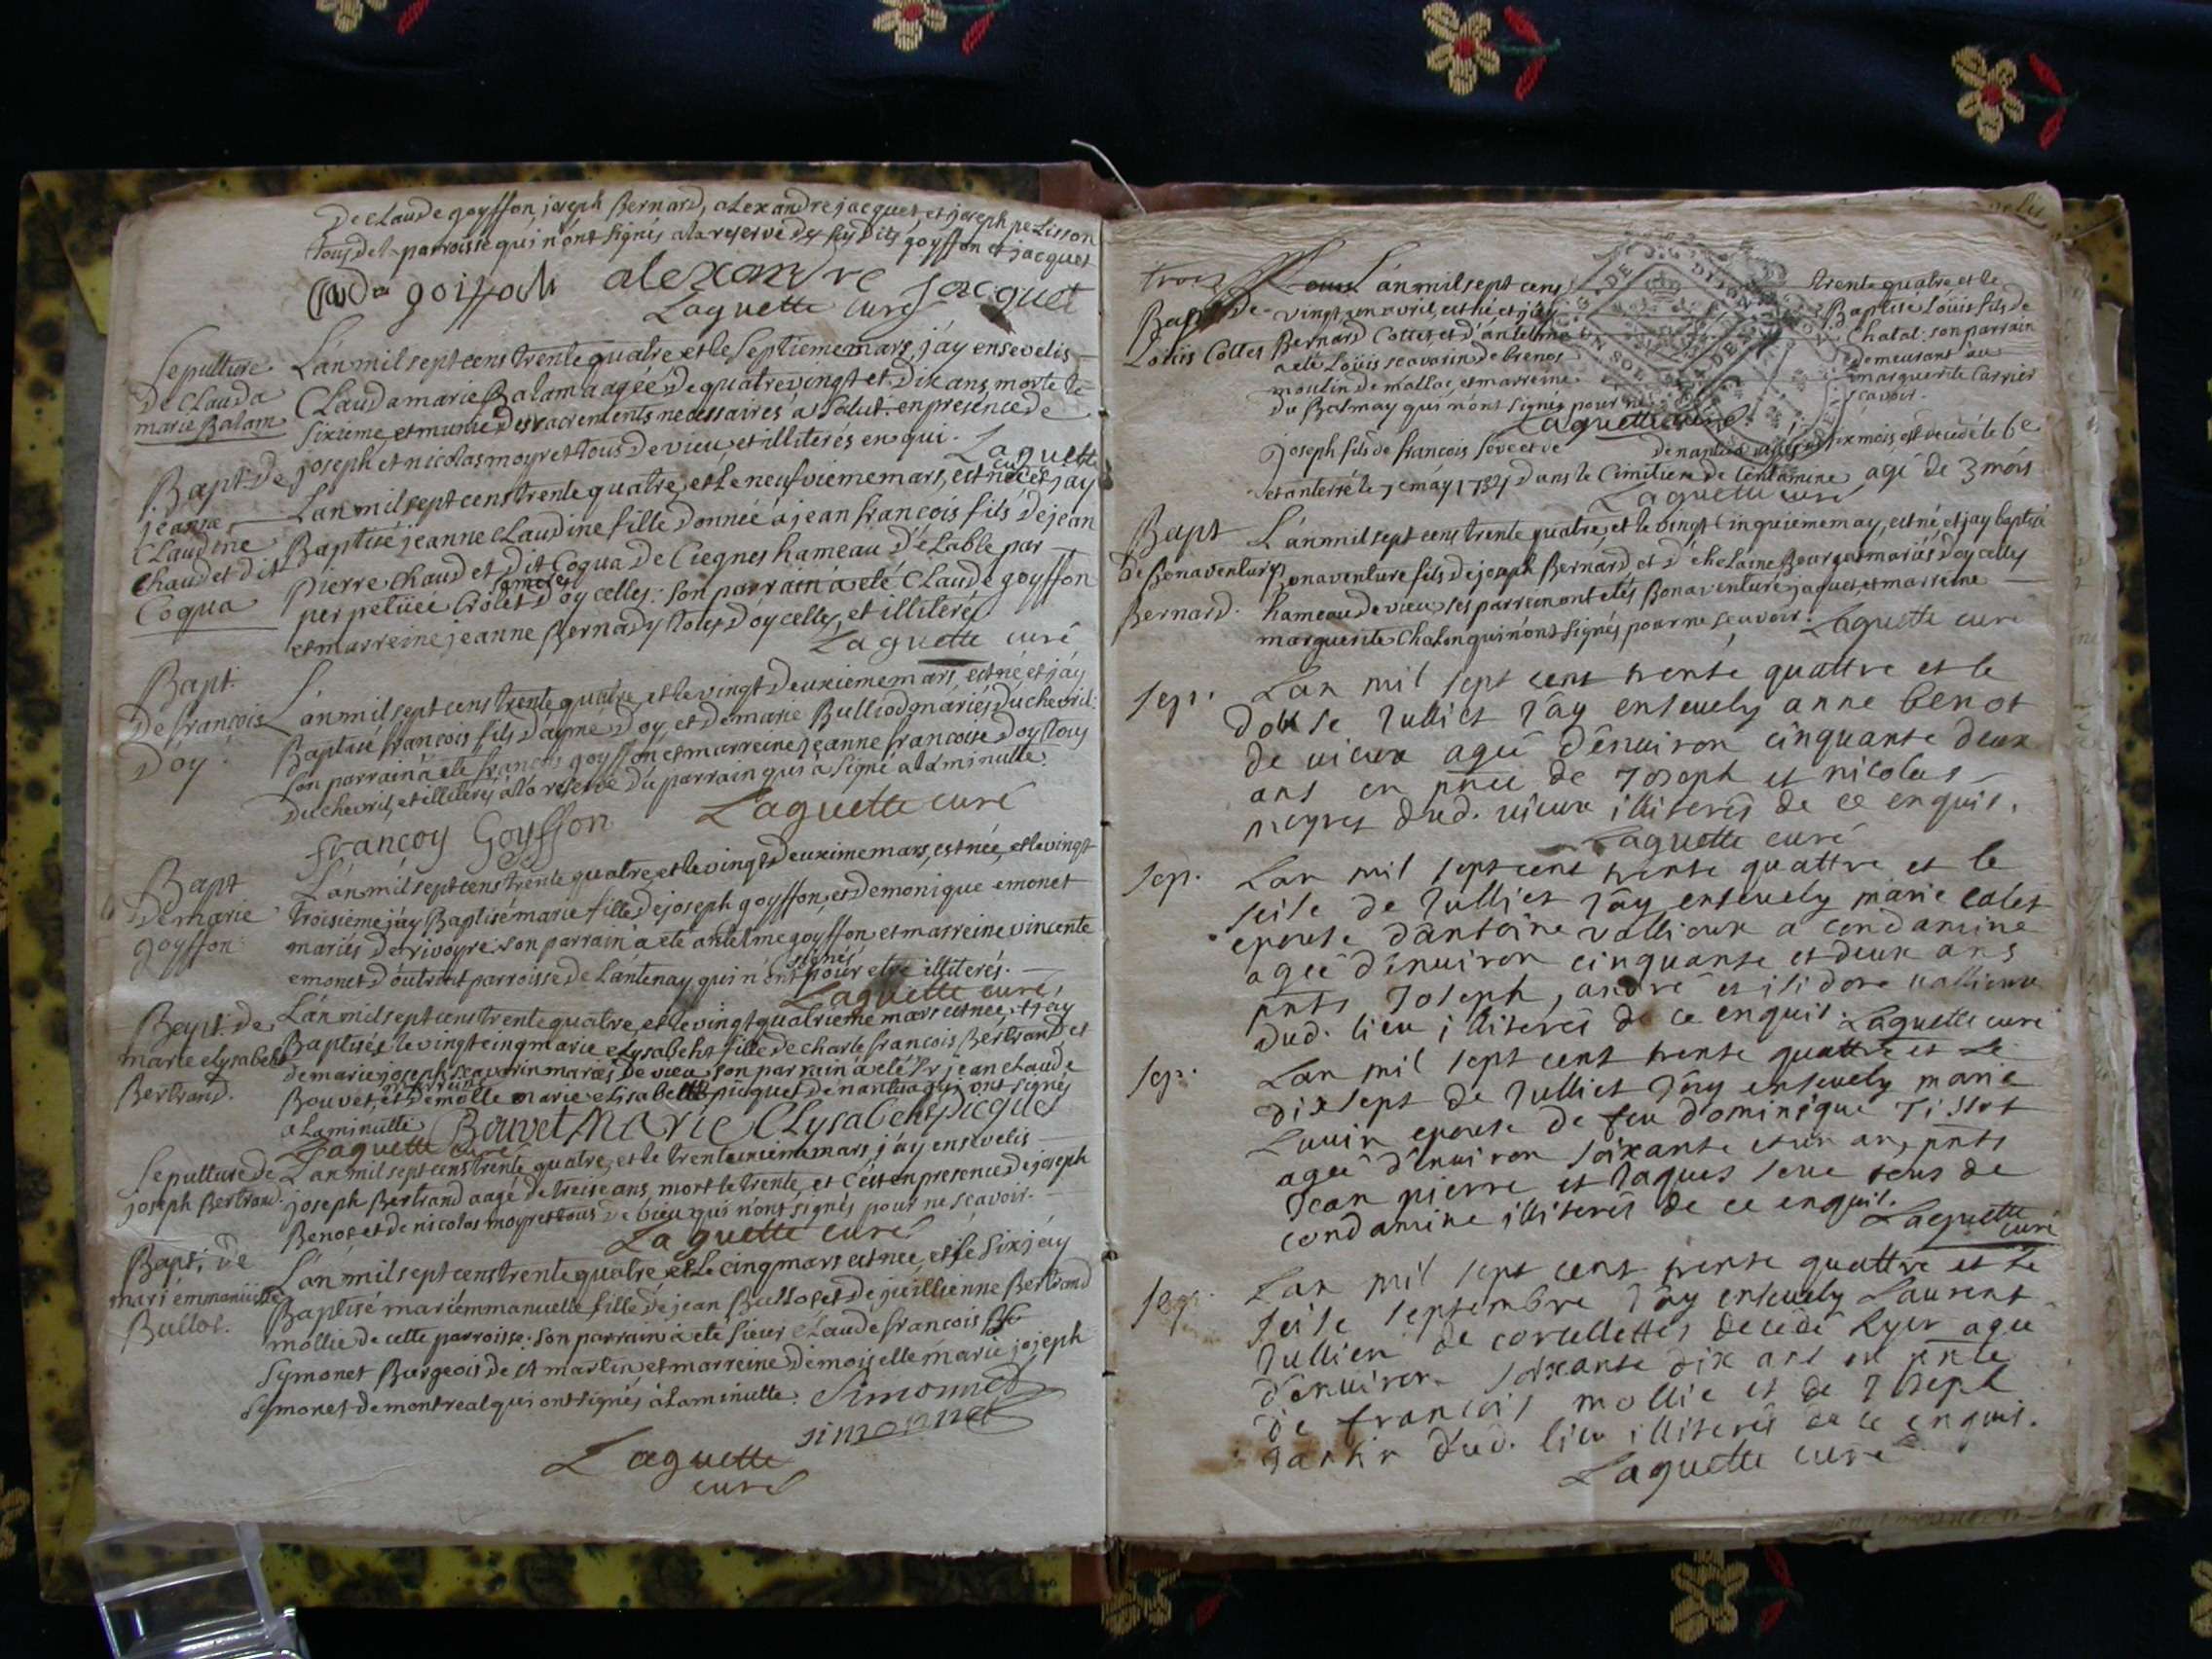 De claude goyffon, joseph Bernard, alexandre jacquet, et joseph pelisson
tous de parroisse qui n'ont signés a la reserve des susdits goyffon et jacquet
goiffon alexandre jacquet
Laguette curé
Sepulture
De Clauda
marie Balam
L'an mil sept cens trente quatre et le septieme mars, j'ay ensevelis
Clauda marie Balam aagéé de quatrevingt et dix ans, morte le
sixieme, et munie des sacrements necessaires a salut. en presence de
joseph et nicolas moyret tous de vieu, et illiterés en qui.
Laguette
curé
Bapt. de
jeanne
Claudine
Chaudet dit
Coqua
L'an mil sept cens trente quatre, et le neufvieme mars, est née et j'ay
Baptisé jeanne Claudine fille donnée à jean francois fils de jean
Pierre Chaudet dit Coqua de Ciegnes hameau d'
perpetüeé d'oycelles: son parrain à eté Claude goyffon
et marreine jeanne Bernady tous d'oycelles, et illiterés
Laguette curé
Bapt.
De françois
Doy.
L'an mil sept cens trente quatre, et le vingt deuxieme mars, est né et j'ay
Baptisé francois fils d'ayme Doy, et de marie Bulliod mariés du chevril:
son parrain à eté francois goyffon et marreine jeanne francoise Doy tous
du chevril, et illiterés à la reserve du parrain qui à signé a la minutte.
Laguette curé
françoy Goyffon
Bapt
De marie
goyffon
L'an mil sept cens trente quatre, et le vingt deuxime mars, est née, et le vingt
troisieme j'ay Baptisé marie fille de joseph goyffon, et de monique emonet
mariés de rivoyre: son parrain à eté antelme goyffon et marreine vincente
emonet d'outriat parroisse de Lantenay, qui n'ont signés pour etre illiterés.
Laguette curé
Bapt. de
marie elysabeht
Bertrand.
L'an mil sept cens trente quatre, et le vingt quatrieme mars est née, et j'ay
Baptisée le vingt cinq marie elysabeht fille de charle francois Bertrand, et
de marie joseph scavarin mariés de vieu. son parrain à eté sr jean claude
Bouvet, et marreine demolle marie elisabeth picquet de nantua qui ont signés
a la minutte
Bouvet Marie Elysabeht picquet
Laguette curé
Sepulture de
joseph Bertrand.
L'an mil sept cens trente quatre, et le trente unieme mars, j'ay ensevelis
joseph Bertrand aagé de treise ans, mort le trente, et c'est en presence de joseph
Benot et de nicolas moyret tous de vieu qui n'ont signés pour ne scavoir.
Laguette curé
Bapt: de
mari emmanuelle
Bullot.
L'an mil sept cens trente quatre et le cinq mars est née, et le six j'ay
Baptisé mari emmanuelle fille de jean Bullot et de jullienne Bertrand
mollie de cette parroisse: son parrain à eté sieur claude francois
Symonet Burgeois de st martin et marreine demoiselle marie joseph
Symonet de montreal qui ont signés à la minutte.
Simonnet
simonnet
Laguette
curé
trois
Bapt de
Loüis Cottet
L'an mil sept cens trente quatre et le
vingt un avril, est né et j'ay Baptisé Loüis fils de
Bernard Cottet, et d'antelma Chatal: son parrain
a eté Loüis scavarin de brenot demeurant au
moulin de mallac, et marreine marguerite Carrier
du Balmay qui n'ont signés pour ne scavoir.
Laguette curé
joseph fils de francois seve et de de nantua six mois est decedé le 6e
et enterré le 7e may 1734 dans le Cimitiere de Condamine agé de 3 mois
Laguette curé
Bapt
De Bonaventure
Bernard.
L'an mil sept cens trente quatre, et le vingt cinquiememay, est né et j'ay baptisé
Bonaventure fils de joseph Bernard et d'helaine Bourgeat mariés d'oycelles
hameau de vieu, ses parrein ont etés Bonaventure jaquet, et marreine
marguerite Chalon qui n'ont signés pour ne scavoir.
Laguette curé
Sep.
Lan mil sept cent trente quattre et le
douse Julliet J'ay ensevely anne benot
de uieux ageé d'enuiron cinquante deux
ans en pnce de Joseph et nicolas
moyret dud. uieux illiterés de ce enquis.
Laguette curé
Sep.
Lan mil sept cent trente quattre et le
seise de Julliet J'ay ensevely marie calet
epouse d'antoine vallioux a condamine
ageé d'enuiron cinquante et deux ans
pnts Joseph, andré et isidore uallioux
dud. lieu illiterés de ce enquis. Laguette curé
Sep.
Lan mil sept cent trente quattre et le
dixsept de Julliet J'ay ensevely marie
Louin epouse de feu dominique Tissot
ageé d'enuiron soixante et un an, pnts
Jean pierre et Jaques seue tous de
condamine illiterés de ce enquis.
Laguette
curé
Sep.
Lan mil sept cent trente quattre et le
seise septembre J'ay ensevely Laurent
Jullien de corcellettes decedé hyer ageé
d'enuiron soixante dix ans en pnce
de francois mollie et de Joseph
dud. lieu illiterés de ce enquis.
Laguette curé